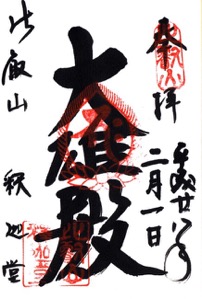 奉拝
平成廿八年
二月一日
大雄殿
比叡山 釈迦堂